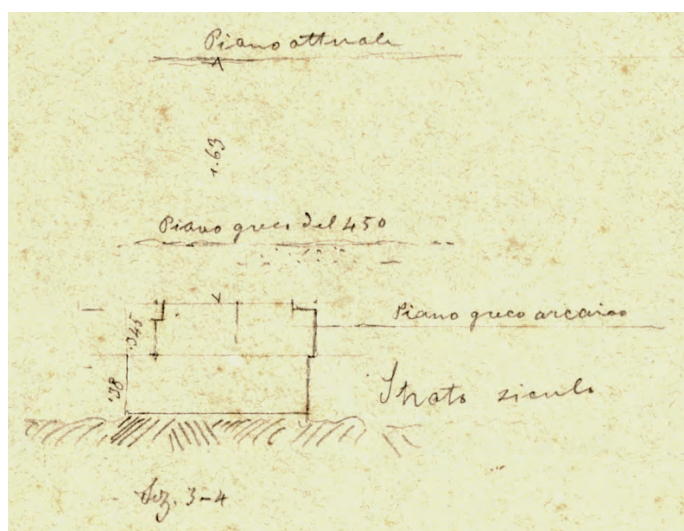 Piano attuale
1.63
Piano greco del 450
Piano greco arcaico
.345
.38
Strato siculo
Sez. 3-4